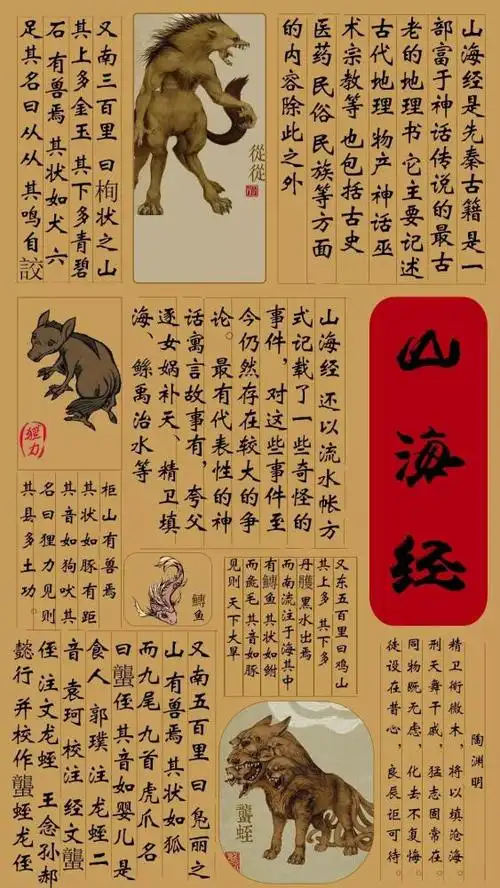 山海经是先秦古籍是一
部富于神话传说的最古
老的地理书它主要记述
古代地理 物产 神话 巫
术 宗教等 也包括古史
医药 民俗 民族等方面
的内容除此之外
從從
又南三百里 曰栒状之山
其上多金玉 其下多青碧
石 有兽焉 其状如犬 六
足 其名曰从从 其鸣自詨
山海经
山海经 还以流水帐方
式记载了一些奇怪的
事件，对这些事件至
今仍然存在较大的争
论。最有代表性的神
话寓言故事有，夸父
逐女娲补天、精卫填
海、鲧禹治水等
狸力
柜山有兽焉
其状如豚有距
其音如狗吠其
名曰狸力见则
其县多土功。
又东五百里曰鸡山
其上多 其下多
丹雘 黑水出焉
而南流注于海其中
有鱄鱼 其状如鲋
而彘毛 其音如豚
见则 天下大旱
鱄鱼
陶渊明
精卫衔微木，将以填沧海。
刑天舞干戚，猛志固常在。
同物既无虑，化去不复悔。
徒设在昔心，良辰讵可待。
又南五百里 曰凫丽之
山 有兽焉 其状如狐
而九尾 九首 虎爪 名
曰蠪侄 其音如婴儿 是
食人 郭璞 注 龙蛭 二
音 袁珂 校注 经文蠪
侄 注文龙蛭 王念孙郝
懿行 并校作 蠪蛭龙侄
蠪蛭